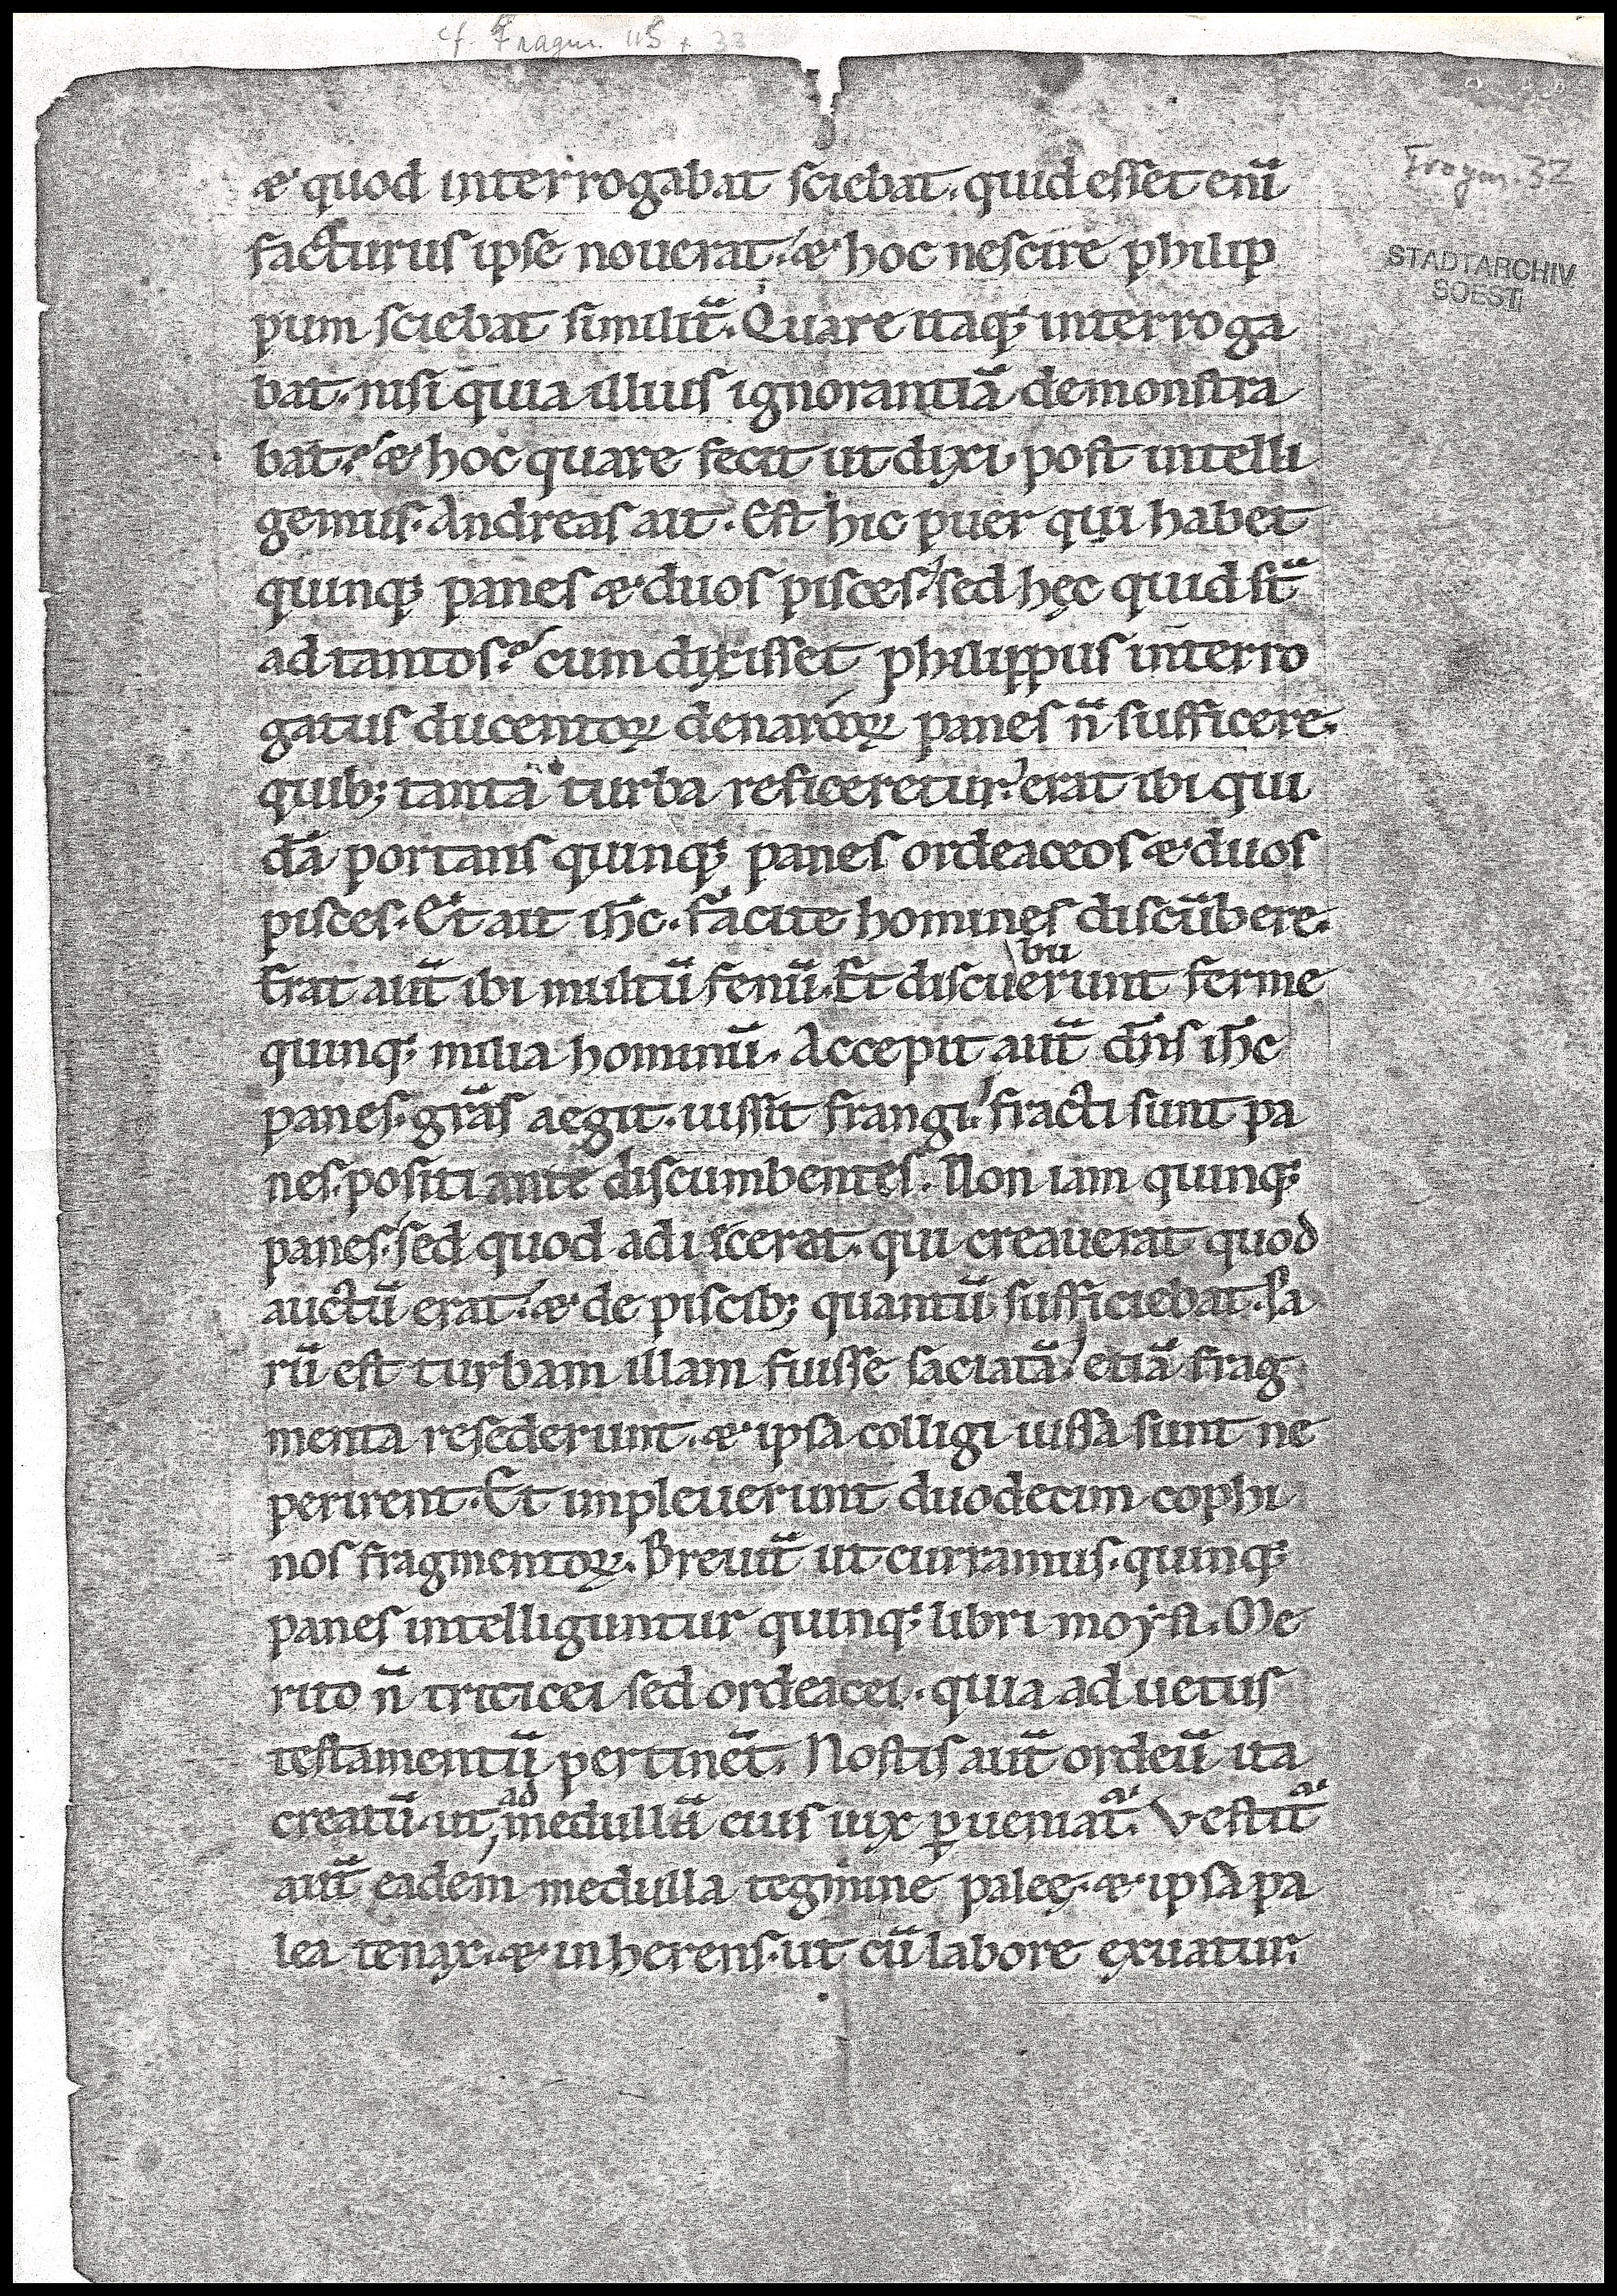 cf. Fragm. 115 + 33
Fragm. 32
STADTARCHIV
SOEST
& quod interrogabat sciebat. quid esset enī
facturus ipse nouerat. & hoc nescire philip
pum sciebat similit̄. Quare itaq; interroga
bat. nisi quia illius ignorantiā demonstra
bat. & hoc quare fecit ut dixi. post intelli
gemus. Andreas ait. Est hic puer qui habet
quinq; panes & duos pisces. sed hęc quid st̄
ad tantos? cum dixisset philippus interro
gatus ducentoꝝ denarioꝝ panes n̄ sufficere.
quib; tanta turba reficeretur. erat ibi qui
dā portans quinq; panes ordeaceos & duos
pisces. Et ait ih̄c. facite homines discūbere.
Erat aut̄ ibi multū fenū. Et discu\bu/erunt ferme
quinq; milia hominū. Accepit aut̄ dn̄s ih̄c
panes. grās aegit. iussit frangi. fracti sunt pa
nes. positi ante discumbentes. Non iam quinq;
panes. sed quod adiecerat. qui creauerat quod
auctū erat. & de piscib; quantū sufficiebat. Pa
rū est turbam illam fuisse saciatā. etiā frag
menta resederunt. & ipsa colligi iussa sunt ne
perirent. Et impleuerunt duodecim cophi
nos fragmentoꝝ. Breuit̄ ut curramus. quinq;
panes intelliguntur quinq; libri moysi. Me
rito n̄ triticei sed ordeacei. quia ad uetus
testamentū pertinēt. Nostis aut̄ ordeū ita
creatū. ut \ad/ medullā eius uix ꝑueniat᷑. Vestit᷑
aut̄ eadem medulla tegmine paleę. & ipsa pa
lea tenax. & inherens. ut cū labore exuatur.